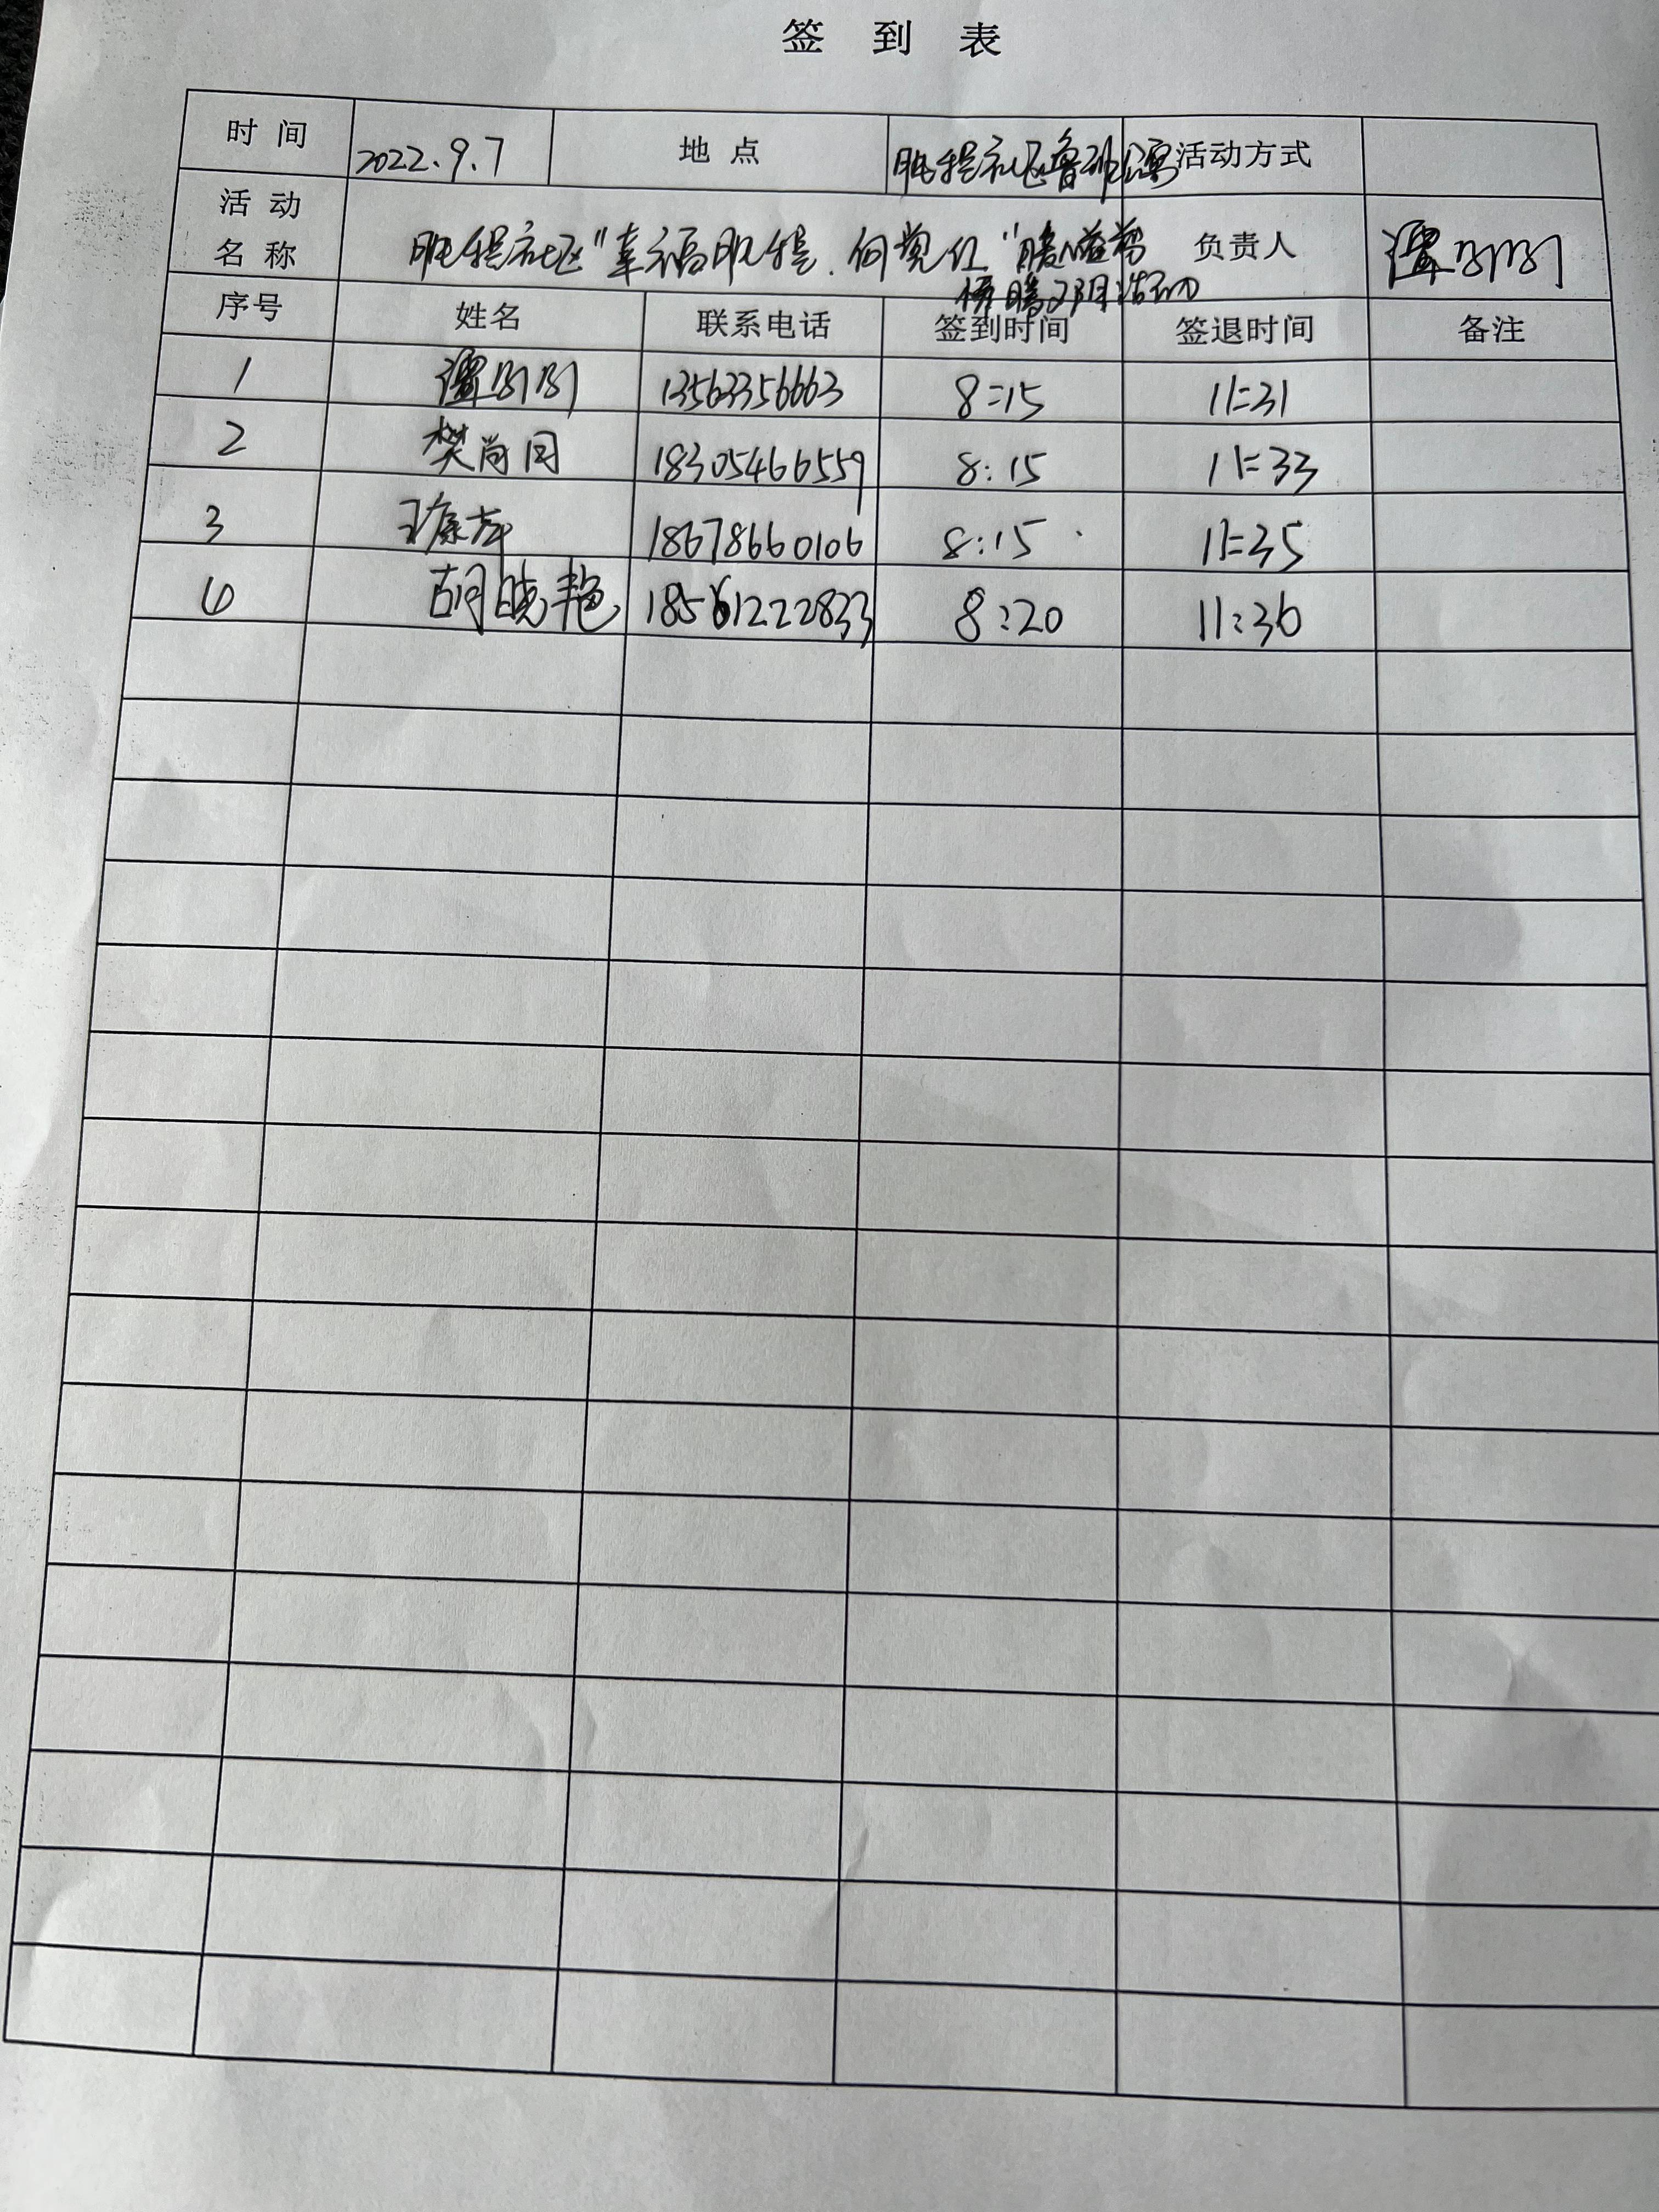 签 到 表
时 间 2022.9.7 地 点 社区鲁班公寓 活动方式
活 动
名 称 社区"幸福 "暖 负责人 谭
活动
序号 姓名 联系电话 签到时间 签退时间 备注
1 谭 13563356663 8:15 11:31
2 樊尚同 18305466559 8:15 11:33
3 王康 18678660106 8:15 11:35
4 胡晓艳 18561222833 8:20 11:36